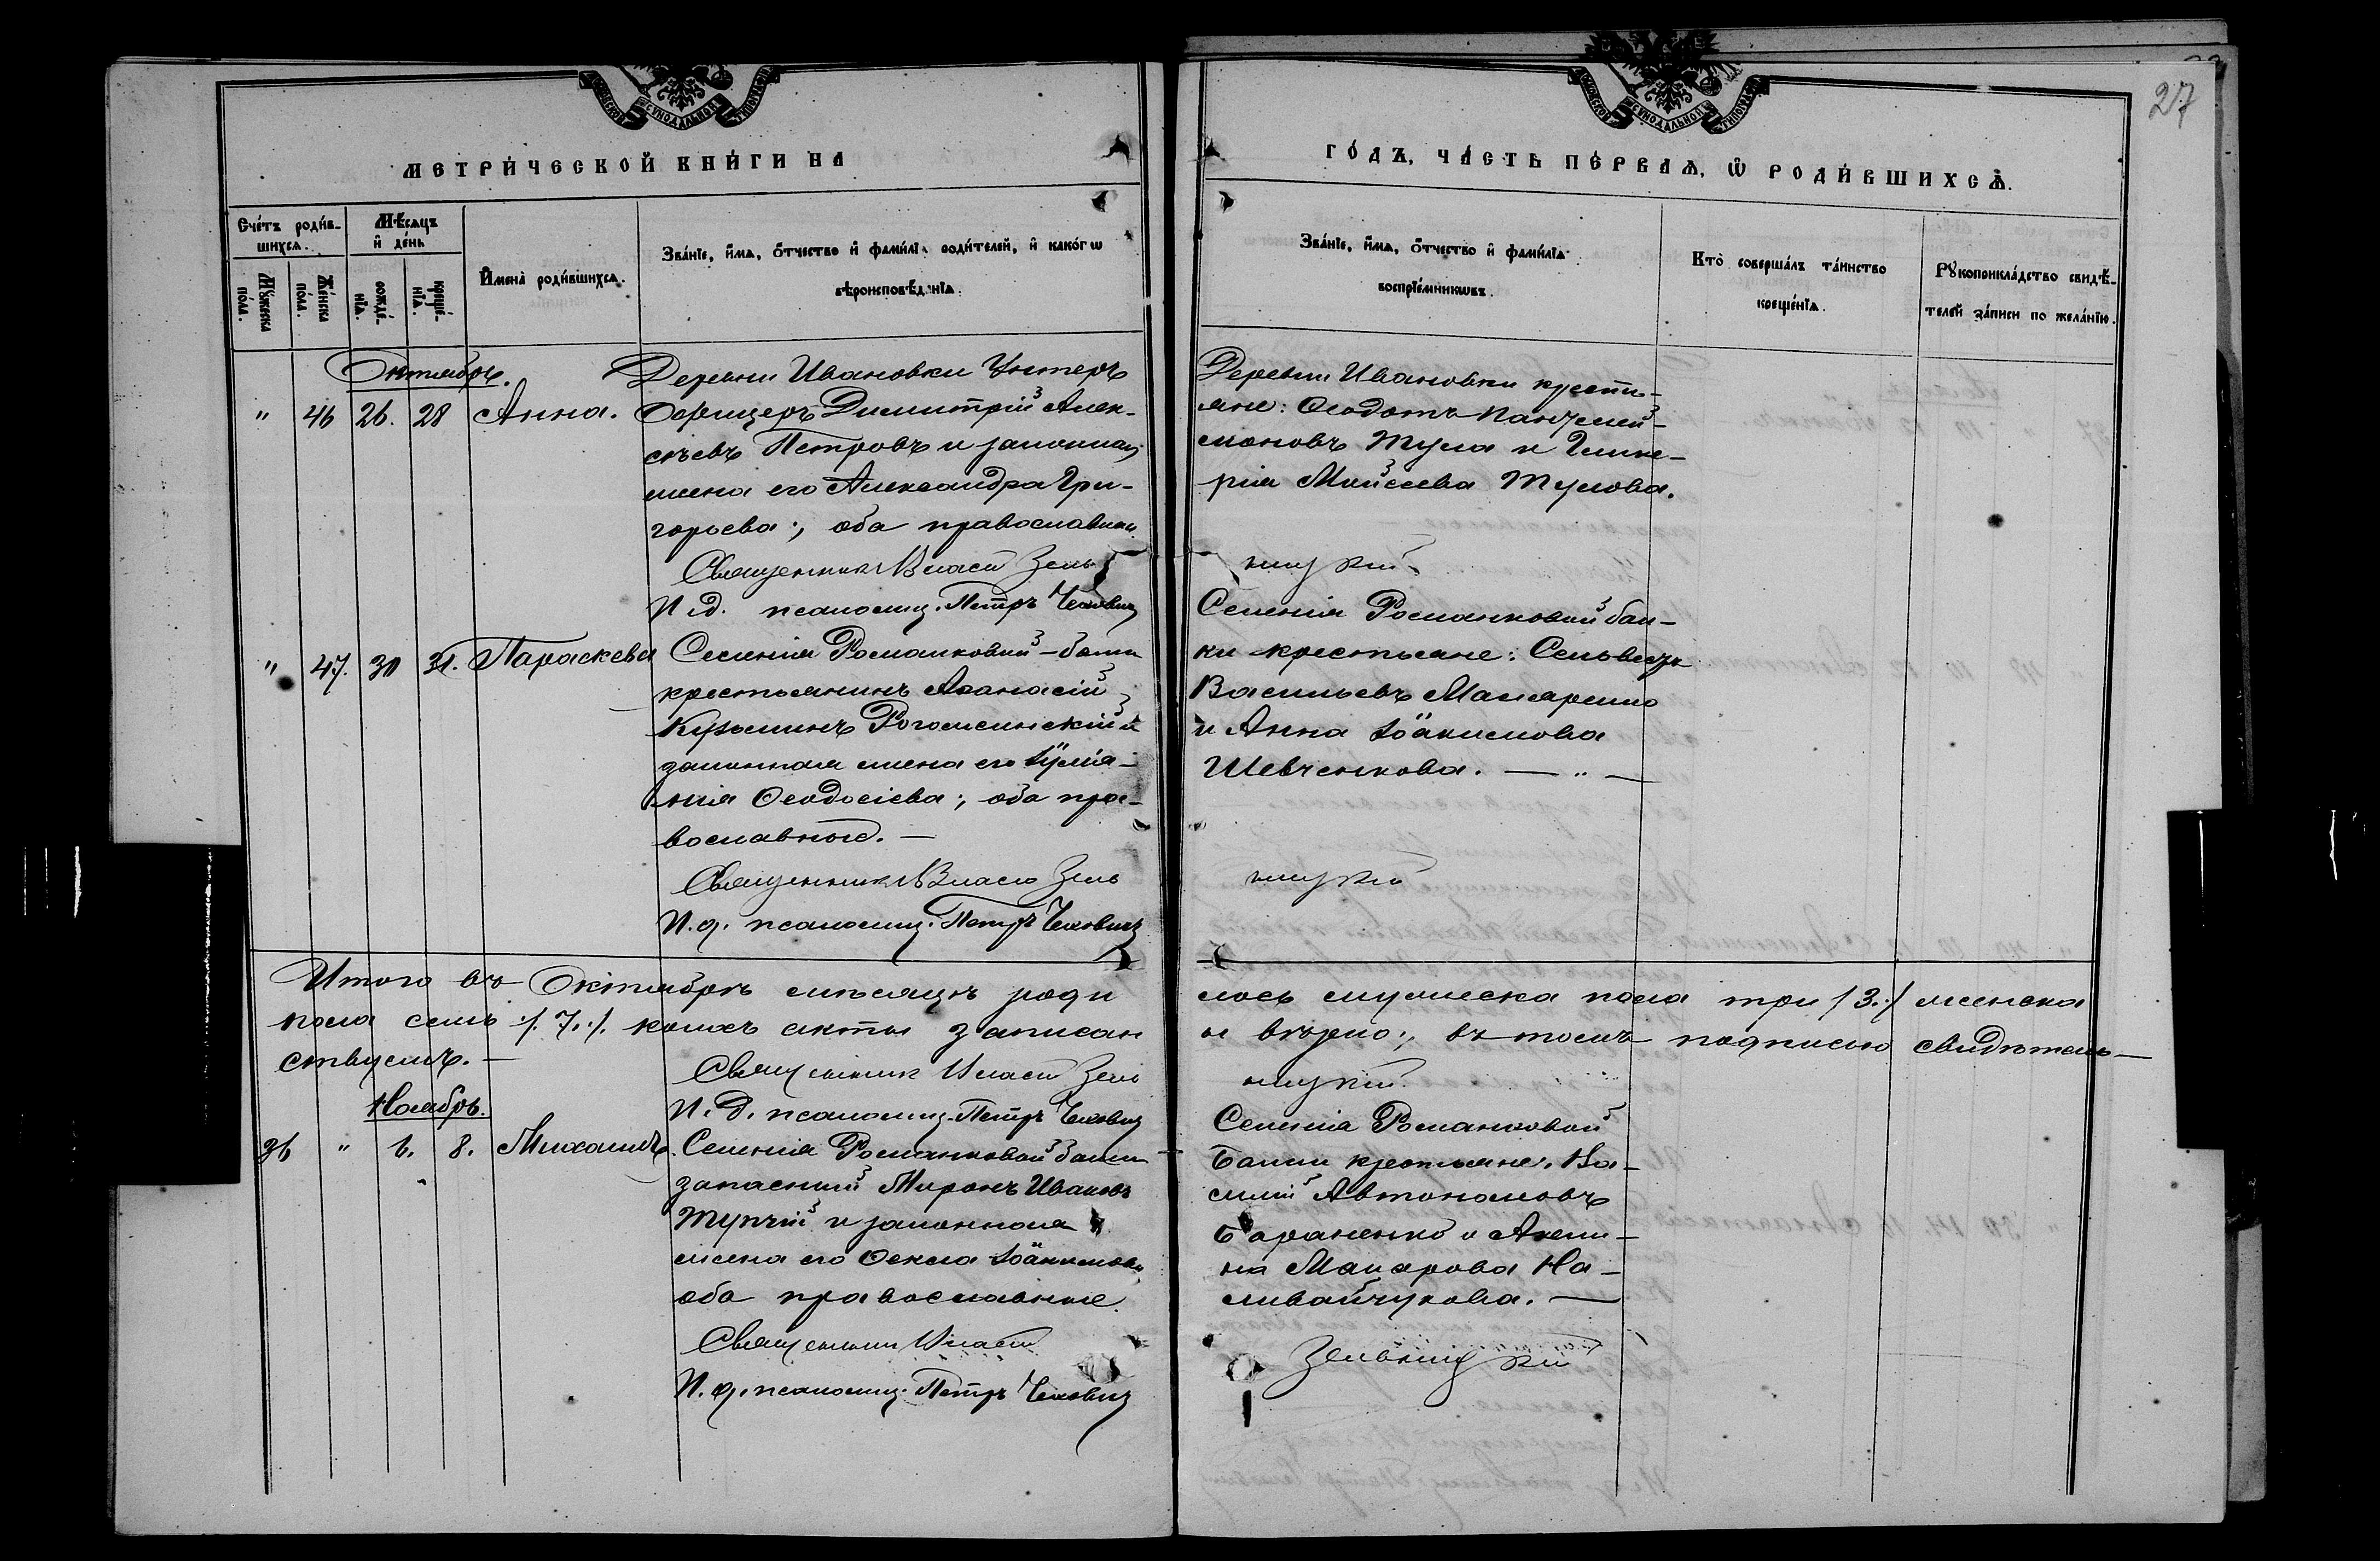 27
МОСКОВСКОЙ СѴНОДАЛЬНОЙ ТИПОГРАФІИ
МОСКОВСКОЙ СѴНОДАЛЬНОЙ ТИПОГРАФІИ
МЕТРИ́ЧЕСКОЙ КНИ́ГИ НА
ГО́ДЪ, ЧА́СТЬ ПЕ́РВАѦ, Ѡ҆ РОДИ́ВШИХСѦ.
Сче́тъ роди́в-
шихсѧ.
Мѣ́сѧцъ
и҆ де́нь
Мꙋ́жеска
по́ла.
Же́нска
по́ла.
рожде́-
нїѧ.
креще́-
нїѧ.
И҆мена̀ роди́вшихсѧ.
Зва́нїе, и҆́мѧ, ѻ҆́тчество и҆ фамилїѧ роди́телей, и҆ како́гѡ
вѣроисповѣ́данїѧ.
Зва́нїе, и҆́мѧ, ѻ҆́тчество и҆ фамилїѧ
воспрїе́мникѡвъ.
Кто̀ соверша́лъ та́инство
креще́нїѧ.
Рꙋкоприкла́дство свидѣ́-
телей за́писи по жела́нїю.
Октябрь.
" 46 26. 28 Анна.
Деревни Ивановки Унтеръ
Офицеръ Димитрій Алек-
сѣевъ Петровъ и законная
жена его Александра Гри-
горьева; оба православные
Священникъ Власій Зель
И.д. псаломщ. Петръ Чехович
Деревни Ивановки кресть-
яне: Ѳеодотъ Пантелей-
моновъ Тула и Глике-
рія Мойсеева Тулова.
ницкій
" 47. 30 31. Параскева
Селенія Романковой-балки
крестьянинъ Аѳанасій
Кузьминъ Рогожинскій и
законная жена его Іулiа-
нія Ѳеодосіева; оба пра-
вославные. —
Священникъ Власій Зель
И.д. псаломщ. Петръ Чехович
Селенія Романковой бал-
ки крестьяне: Сельвестръ
Васильевъ Макаренко
и Анна Іоакимова
Шевченкова. — " —
ницкій
Итого въ Октябрѣ мѣсяцѣ роди
лось мужеска пола три /3./ женска
пола семь ./. 7. ./. коихъ акты записан
ы вѣрно; въ томъ подписью свидѣтель-
ствуемъ. —
Священникъ Власій Зель
ницкій
И.д. псаломщ. Петръ Чехович
Ноябрь.
36 " 6. 8. Михаилъ.
Селенія Романковой балки
запасный Миронъ Ивановъ
Тупчій и законная
жена его Ѳекла Іоакимова
оба православные
Священникъ Власій
И.д. псаломщ. Петръ Чехович
Селенія Романковой
Балки крестьяне: Ва-
силій Автономовъ
Бараненко и Акили-
на Макарова На-
ливайчукова. —
Зельницкій